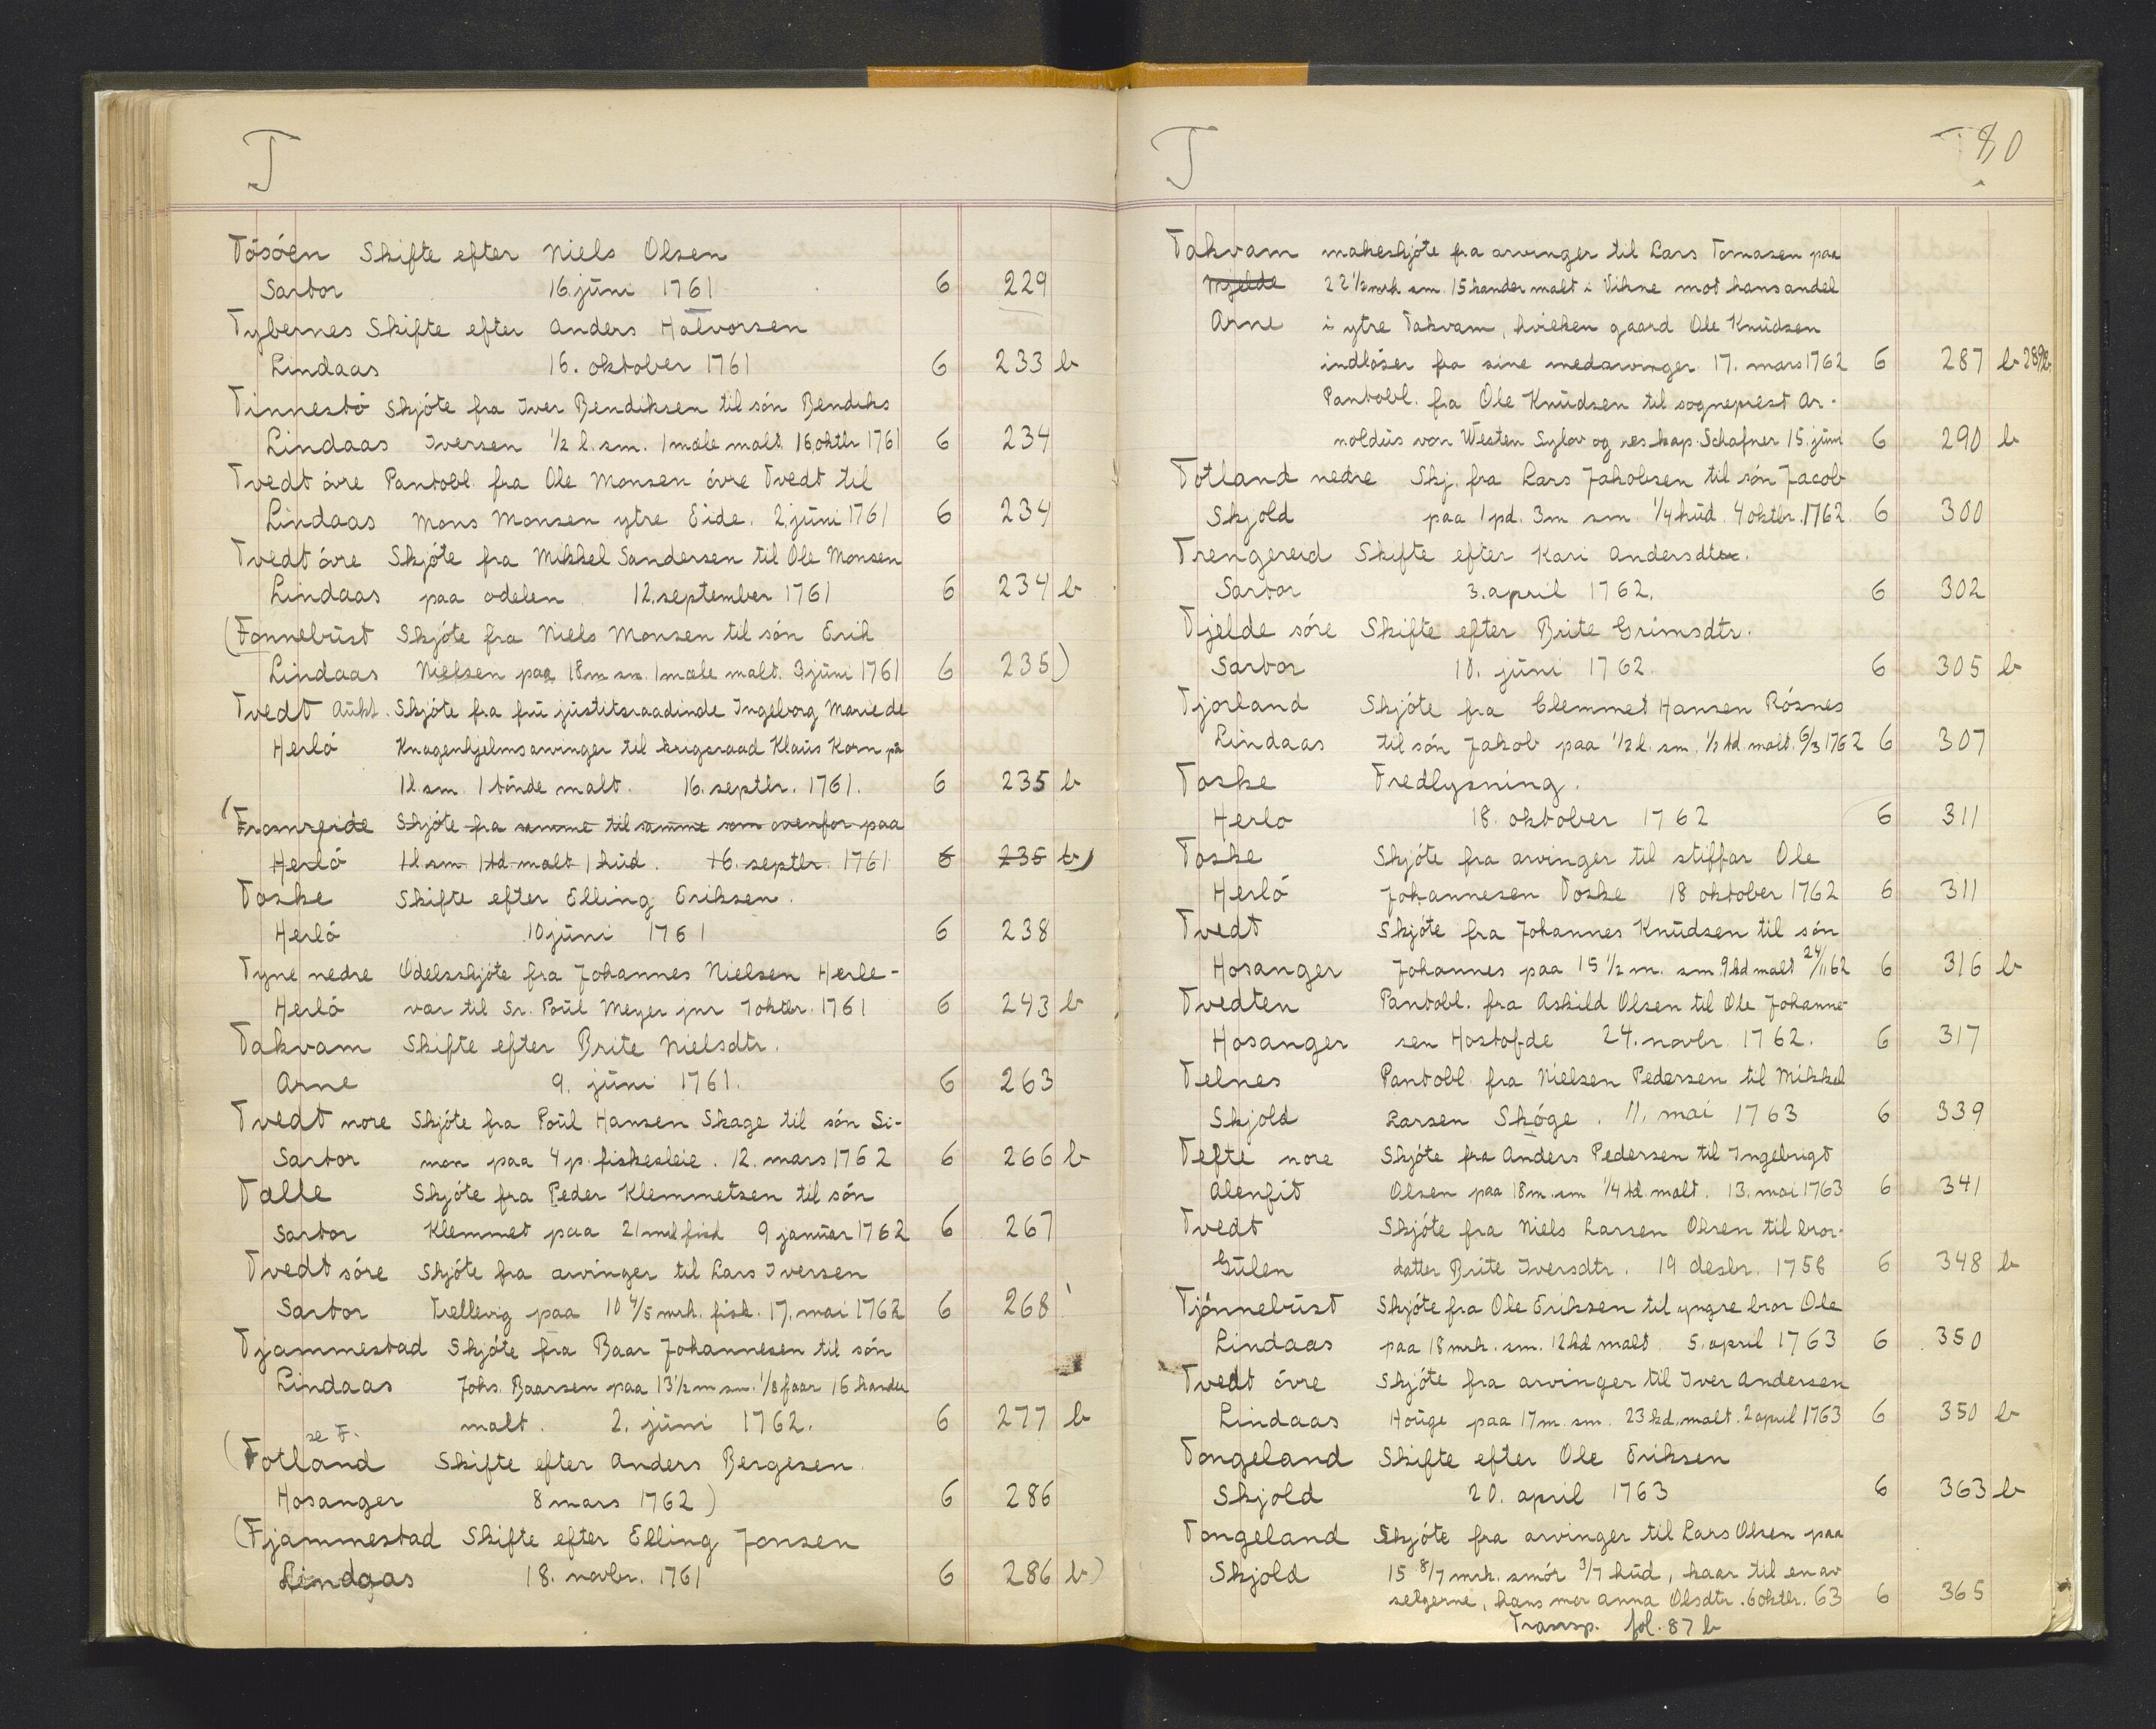 T
Tösöen Skifte efter Niels Olsen
Sartor 16. juni 1761 6 229
Tybernes Skifte efter Anders Halvorsen
Lindaas 16. oktober 1761 6 233 b
Tinnestö Skjöte fra Iver Bendiksen til sön Bendiks
Lindaas Iversen 1/2 l. sm. 1 mæle malt. 16 oktbr 1761 6 234
Tvedt övre Pantobl. fra Ole Monsen övre Tvedt til
Lindaas Mons Monsen ytre Eide. 2. juni 1761 6 234
Tvedt övre Skjöte fra Mikkel Sandersen til Ole Monsen
Lindaas paa odelen 12. september 1761 6 234 b
(Fonnebust Skjöte fra Niels Monsen til sön Erik
Lindaas Nielsen paa 18 m sm. 1 mæle malt. 3 juni 1761 6 235)
Tvedt Aukt. Skjöte fra fru justitsraadinde Ingeborg Marie de
Herlö Knagenhjelms arvinger til krigsraad Klaus Korn pa
1 l. sm. 1 tönde malt. 16. septbr. 1761. 6 235 b
(Fromreide Skjöte fra samme til samme som ovenfor paa
Herlö 1 l. sm. 1 td malt 1 hud. 16. septbr. 1761 6 235 b)
Toske Skifte efter Elling Eriksen.
Herlö 10 juni 1761 6 238
Tyne nedre Odelsskjöte fra Johannes Nielsen Herle-
Herlö var til Sr. Poul Meyer jnr 7 oktbr. 1761 6 243 b
Takvam Skifte efter Brite Nielsdtr.
Arne 9. juni 1761. 6 263
Tvedt nore Skjöte fra Poul Hansen Skage til sön Si-
Sartor mon paa 4 p. fiskesleie. 12. mars 1762 6 266 b
Talle Skjöte fra Peder Klemmetsen til sön
Sartor Klemmet paa 21 mrk fisk 9 januar 1762 6 267
Tvedt söre Skjöte fra arvinger til Lars Iversen
Sartor Trellevig paa 10 4/5 mrk. fisk. 17. mai 1762 6 268
Tjammestad Skjöte fra Baar Johannesen til sön
Lindaas Johs. Baarsen paa 13 1/2 m sm. 1/8 faar 16 kander
malt. 2. juni 1762. 6 277 b
se F.
(Fotland Skifte efter Anders Bergesen.
Hosanger 8 mars 1762) 6 286
(Fjammestad Skifte efter Elling Jonsen
Lindaas 18. novbr. 1761 6 286 b)
T 80
Takvam makeskjöte fra arvinger til Lars Tomasen paa
Mjelde 22 1/2 mrk sm. 15 kander malt i Vikne mot hans andel
Arne i ytre Takvam, hvilken gaard Ole Knudsen
indlöser fra sine medarvinger. 17. mars 1762 6 287 b 289 b
Pantobl. fra Ole Knudsen til sogneprest Ar-
noldus von Westen Sylov og res. kap. Schafner 15. juni 6 290 b
Totland nedre Skj. fra Lars Jakobsen til sön Jacob
Skjold paa 1 pd. 3 m sm. 1/4 hud. 4 oktbr. 1762. 6 300
Trengereid Skifte efter Kari Andersdtr.
Sartor 3. april 1762. 6 302
Tjelde söre Skifte efter Brite Grimsdtr.
Sartor 10. juni 1762. 6 305 b
Tjorland Skjöte fra Clemmet Hansen Rösnes
Lindaas til sön Jakob paa 1/2 l. sm. 1/2 td. malt. 6/3 1762 6 307
Toske Fredlysning.
Herlo 18. oktober 1762 6 311
Toske Skjöte fra arvinger til stiffar Ole
Herlö Johannesen Toske 18 oktober 1762 6 311
Tvedt Skjöte fra Johannes Knudsen til sön
Hosanger Johannes paa 15 1/2 m. sm 9 kd malt 24/11 62 6 316 b
Tvedten Pantobl. fra Askild Olsen til Ole Johanne-
Hosanger sen Hostofde 24. novbr. 1762. 6 317
Telnes Pantobl. fra Nielsen Pedersen til Mikkel
Skjold Larsen Sköge. 11. mai 1763 6 339
Tefte nore Skjöte fra Anders Pedersen til Ingebrigt
Alenfit Olsen paa 18 m. sm 1/4 td. malt. 13. mai 1763 6 341
Tvedt Skjöte fra Niels Larsen Olsen til bror-
Gulen datter Brite Iversdtr. 19 desbr. 1758 6 348 b
Tjönnebust Skjöte fra Ole Eriksen til yngre bror Ole
Lindaas paa 18 mrk. sm. 12 kd malt. 5. april 1763 6 350
Tvedt övre Skjöte fra arvinger til Iver Andersen
Lindaas Houge paa 17 m. sm. 23 kd. malt. 2 april 1763 6 350 b
Tongeland Skifte efter Ole Eriksen
Skjold 20. april 1763 6 363 b
Tongeland Skjöte fra arvinger til Lars Olsen paa
Skjold 15 8/7 mrk. smör 3/7 hud, kaar til en av
selgerne, hans mor Anna Olsdtr. 6 oktbr. 63 6 365
Transp. fol. 87 b